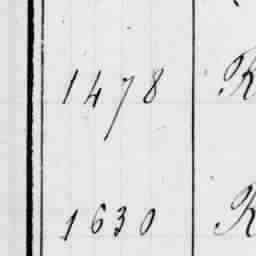 1478 R
1630 R